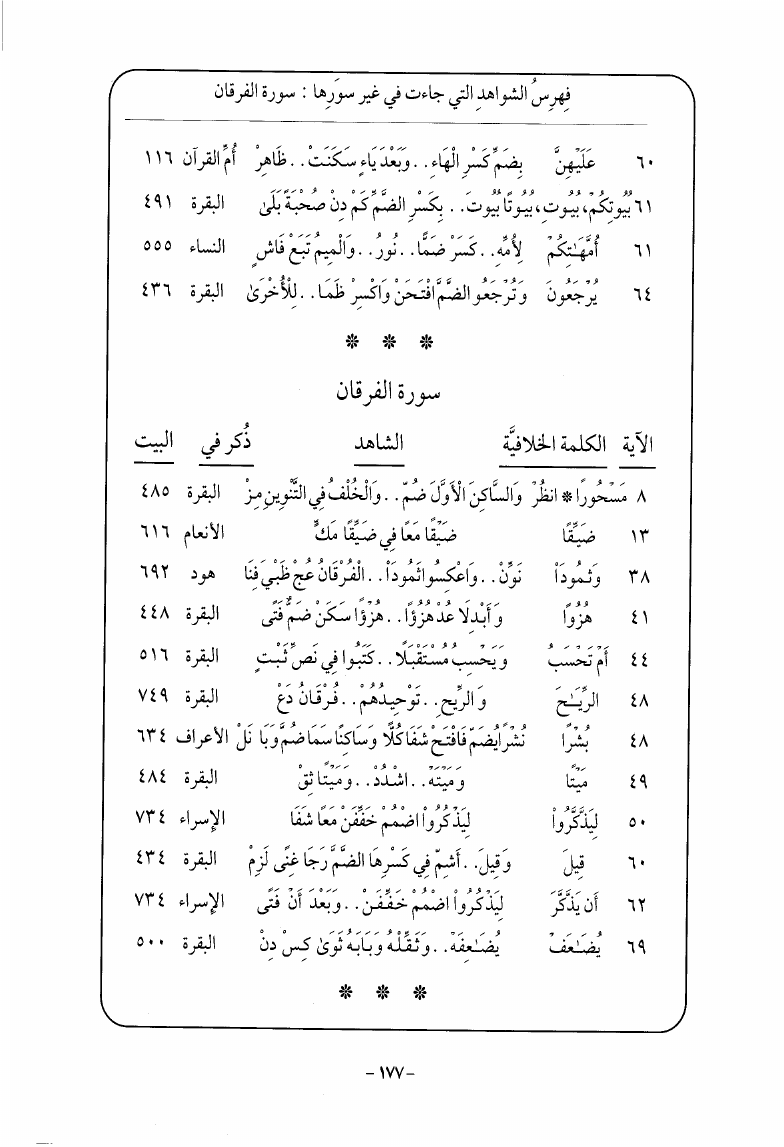 فِهرِسُ الشواهدِ التي جاءت في غير سوَرِها : سورة الفرقان
٦٠ عَلَيْهِنَّ بِضَمِّ كَسْرِ الْهَاءِ . . وَبَعْدَ يَاءٍ سَكَنَتْ . . ظَاهِرْ أُمِّ القرآن ١١٦
٦١ بُيُوتِكُمْ، بُيُوتِ، بُيُوتًا بُيُوتَ . . بِكَسْرِ الضَّمِّ كَمْ دِنْ صُحْبَةٌ بَلَىٰ البقرة ٤٩١
٦١ أُمَّهَٰتِكُمْ لِأُمِّهِ . . كَسْرَ ضَمًّا . . نُورُ . . وَالْمِيمُ تَبَعْ فَاشٍ النساء ٥٥٥
٦٤ يُرْجَعُونَ وَتُرْجَعُو الضَّمَّ افْتَحَنْ وَاكْسِرْ ظَمَا . . لِلْأُخْرَىٰ البقرة ٤٣٦
* * *
سورة الفرقان
الآية الكلمة الخلافيَّة الشاهد ذُكر في البيت
٨ مَسْحُورًا * انظُرْ وَالسَّاكِنَ الْأَوَّلَ ضُمّ . . وَالْخُلْفُ فِي التَّنْوِينِ مِزْ البقرة ٤٨٥
١٣ ضَيِّقًا ضَيْقًا مَعًا فِي ضَيِّقًا مَكٍّ الأنعام ٦١٦
٣٨ وَثَمُودَاْ نَوِّنْ . . وَاعْكِسُوا ثَمُودَاْ . . الْفُرْقَانُ عُجْ ظُبْيَ فِنَا هود ٦٩٢
٤١ هُزُوًا وَأَبْدِلَا عُدْ هُزْؤًا . . هُزْؤًا سَكَنْ ضَمٌّ فَتًى البقرة ٤٤٨
٤٤ أَمْ تَحْسَبُ وَيَحْسَبُ مُسْتَقْبَلًا . . كَتَبُوا فِي نَصِّ ثَبْتٍ البقرة ٥١٦
٤٨ الرِّيَٰحَ وَالرِّيحِ . . تَوْحِيدُهُمْ . . فُرْقَانُ دَعْ البقرة ٧٤٩
٤٨ بُشْرًا نُشْرًا يُضَمّ فَافْتَحْ شَفَا كُلًّا وَسَاكِنًا سَمَا ضُمَّ وَبَا نَلْ الأعراف ٦٣٤
٤٩ مَيْتًا وَمَيْتَةً . . اشْدُدْ . . وَمَيْتًا ثِقْ البقرة ٤٨٤
٥٠ لِيَذَّكَّرُواْ لِيَذْكُرُوا اضْمُمْ خَفِّفَنْ مَعًا شَفَا الإسراء ٧٣٤
٦٠ قِيلَ وَقِيلَ . . أَشِمّ فِي كَسْرِهَا الضَّمَّ رَجَا غِنًى لَزِمْ البقرة ٤٣٤
٦٢ أَن يَذَّكَّرَ لِيَذْكُرُوا اضْمُمْ خَفِّفَنْ . . وَبَعْدَ أَنْ فَتًى الإسراء ٧٣٤
٦٩ يُضَٰعَفْ يُضَٰعِفَهُ . . وَثَقِّلْهُ وَبَابَهُ ثَوَىٰ كِسْ دِنْ البقرة ٥٠٠
* * *
- ١٧٧ -